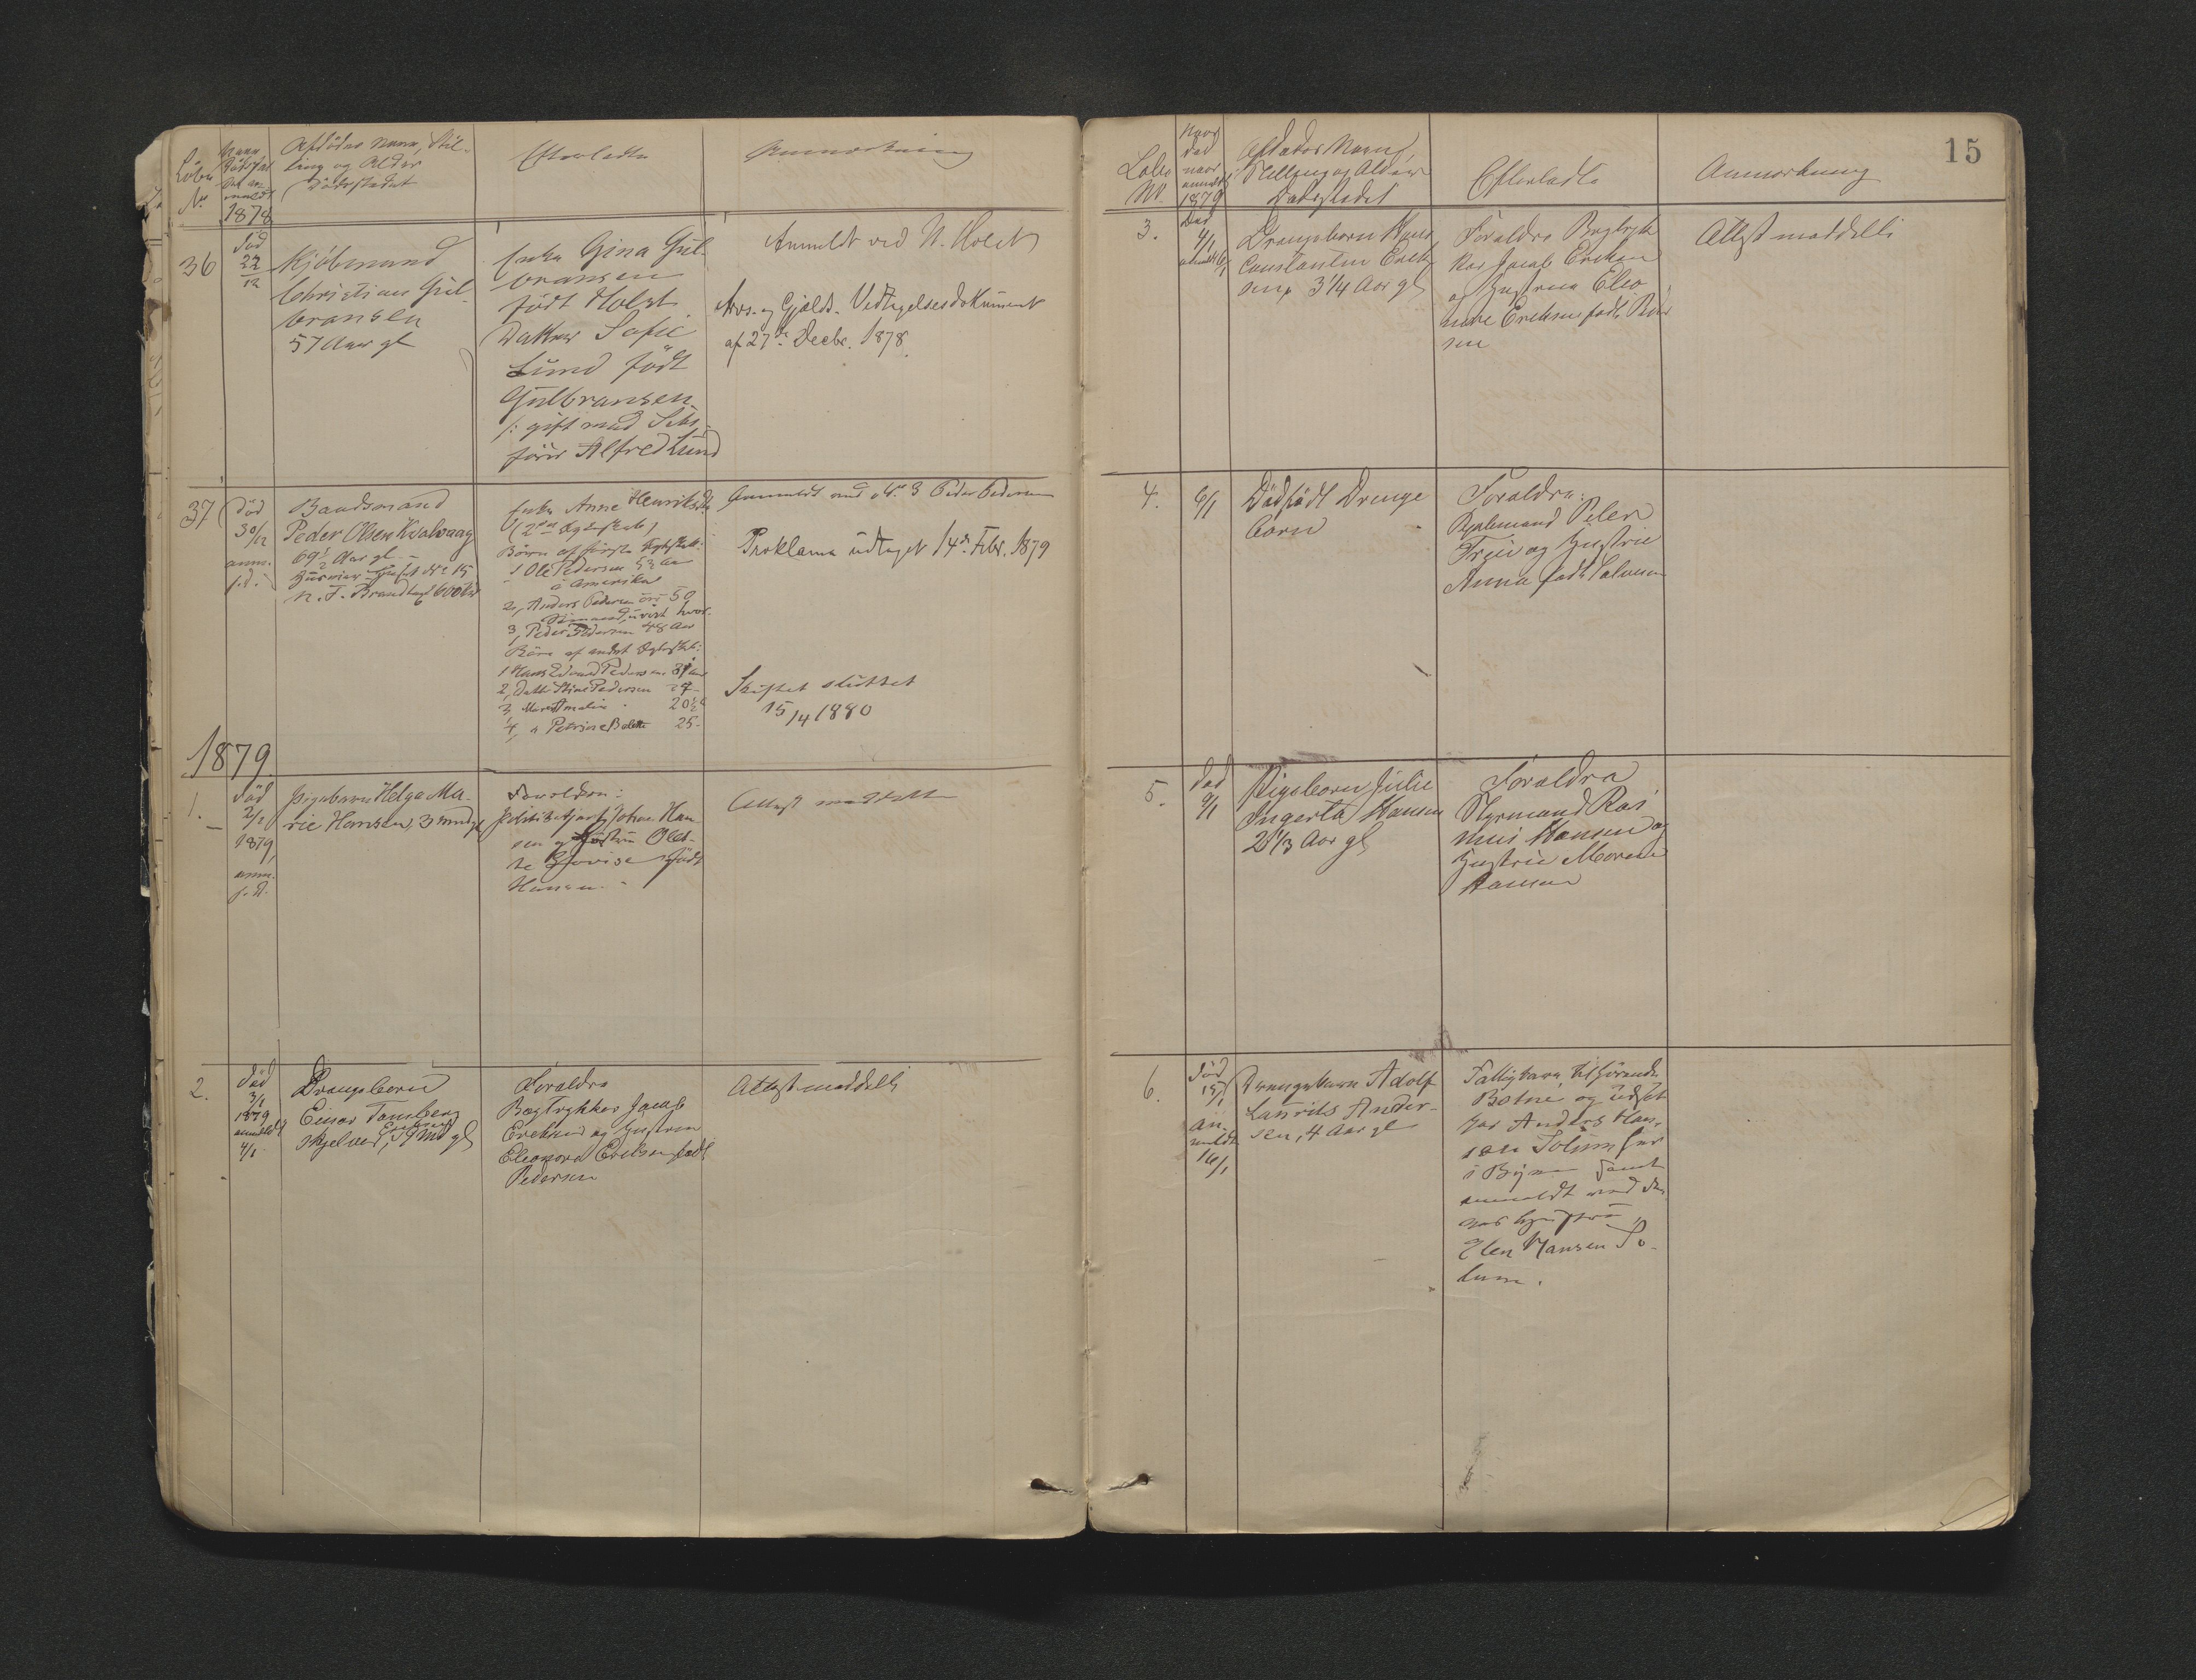 Löbe
No
Naar
Dödsfal
det an-
meldt
1878
Afdödes Navn, Stil-
ling og Alder
Dödsstedet
Efterladte
Anmærkning
36
Död
22
12
Kjöbmand
Christian Gul-
bransen
57 Aar gl
Enke Gina Gul-
bransen
född Holst
Datter Sofie
Lund född
Gulbransen
/: gift med
förer Alfred Lund
Anmeldt ved N. Holst
Arvs- og Gjælds- Vedtagelsesdokument
af 27de Decbr. 1878.
37
Död
30/12
anm.
s.d.
Baadsmand
Peder Olsen Kvalvaag
69½ Aar gl.
No 15
n. F. Brandtaxt 600
Enke Anne Henriksd.
(2det Ægteskab)
Börn af förste Ægteskab:
1 Ole Pedersen 52 Aar
i Amerika
2, Anders Pedersen 50
Sömand, uvist hvor.
3, Peder Pedersen 48 Aar
Börn af andet Ægteskab:
1 Hans Edvard Pedersen 31 Aar
2, Datter Stine Pedersen 27 -
3, Maren Amalie 20½
4, Petrine Bolette 25 -
Anmeldt ved No 3 Peder Pedersen
Proklama udtaget 14de Febr. 1879
Skiftet sluttet
15/4 1880
1879.
1.
Död
2/1
1879,
anm.
s.d.
Pigebarn Helga Ma-
rie Hansen, 3 mndgl
Forældre:
Politibetjent Johan Han
sen og Hustru Oles-
ne Lovise född
Hansen.
Attest meddelt
2.
Död
3/1
1879
anmeldt
4/1
Drengebarn
Einar Tamberg
Eriksen
Skjelver, Md gl
Forældre
Bogtrykker Jacob
Eriksen og Hustru
Eleonora Eriksen född
Pedersen
Attest meddelt
15
Löbe
No.
Naar
död
naar
anmeldt
1879
Afdödes Navn,
Stilling og Alder
Dödsstedet
Efterladte
Anmærkning
3.
Död
4/1
anmeldt 6/1
Drengebarn Hans
Constantin Erik
sen, 3 1/4 Aar gl
Forældre Bogtryk
ker Jacob Eriksen
og Hustru Eleo
nore Eriksen född Peder
sen
Attest meddelt
4.
6/1
Dödfödt Drenge
barn
Forældre:
Peter
og Hustru
Anna född Salvesen
5.
död
9/1
Pigebarn Julie
Ingerta Hansen
2 1/3 Aar gl
Forældre
Styrmand Ras
mus Hansen og
Hustru Maren
Hansen
6.
Död
15/1
An-
meldt
16/1
Drengebarn Adolf
Laurits Ander-
sen, 4 Aar gl
Fattigbarn, tilhörende
Botne og udsat
hos Anders Han-
sen Solum her
i Byen samt
anmeldt ved den-
nes hustru
Elen Hansen So-
lum.